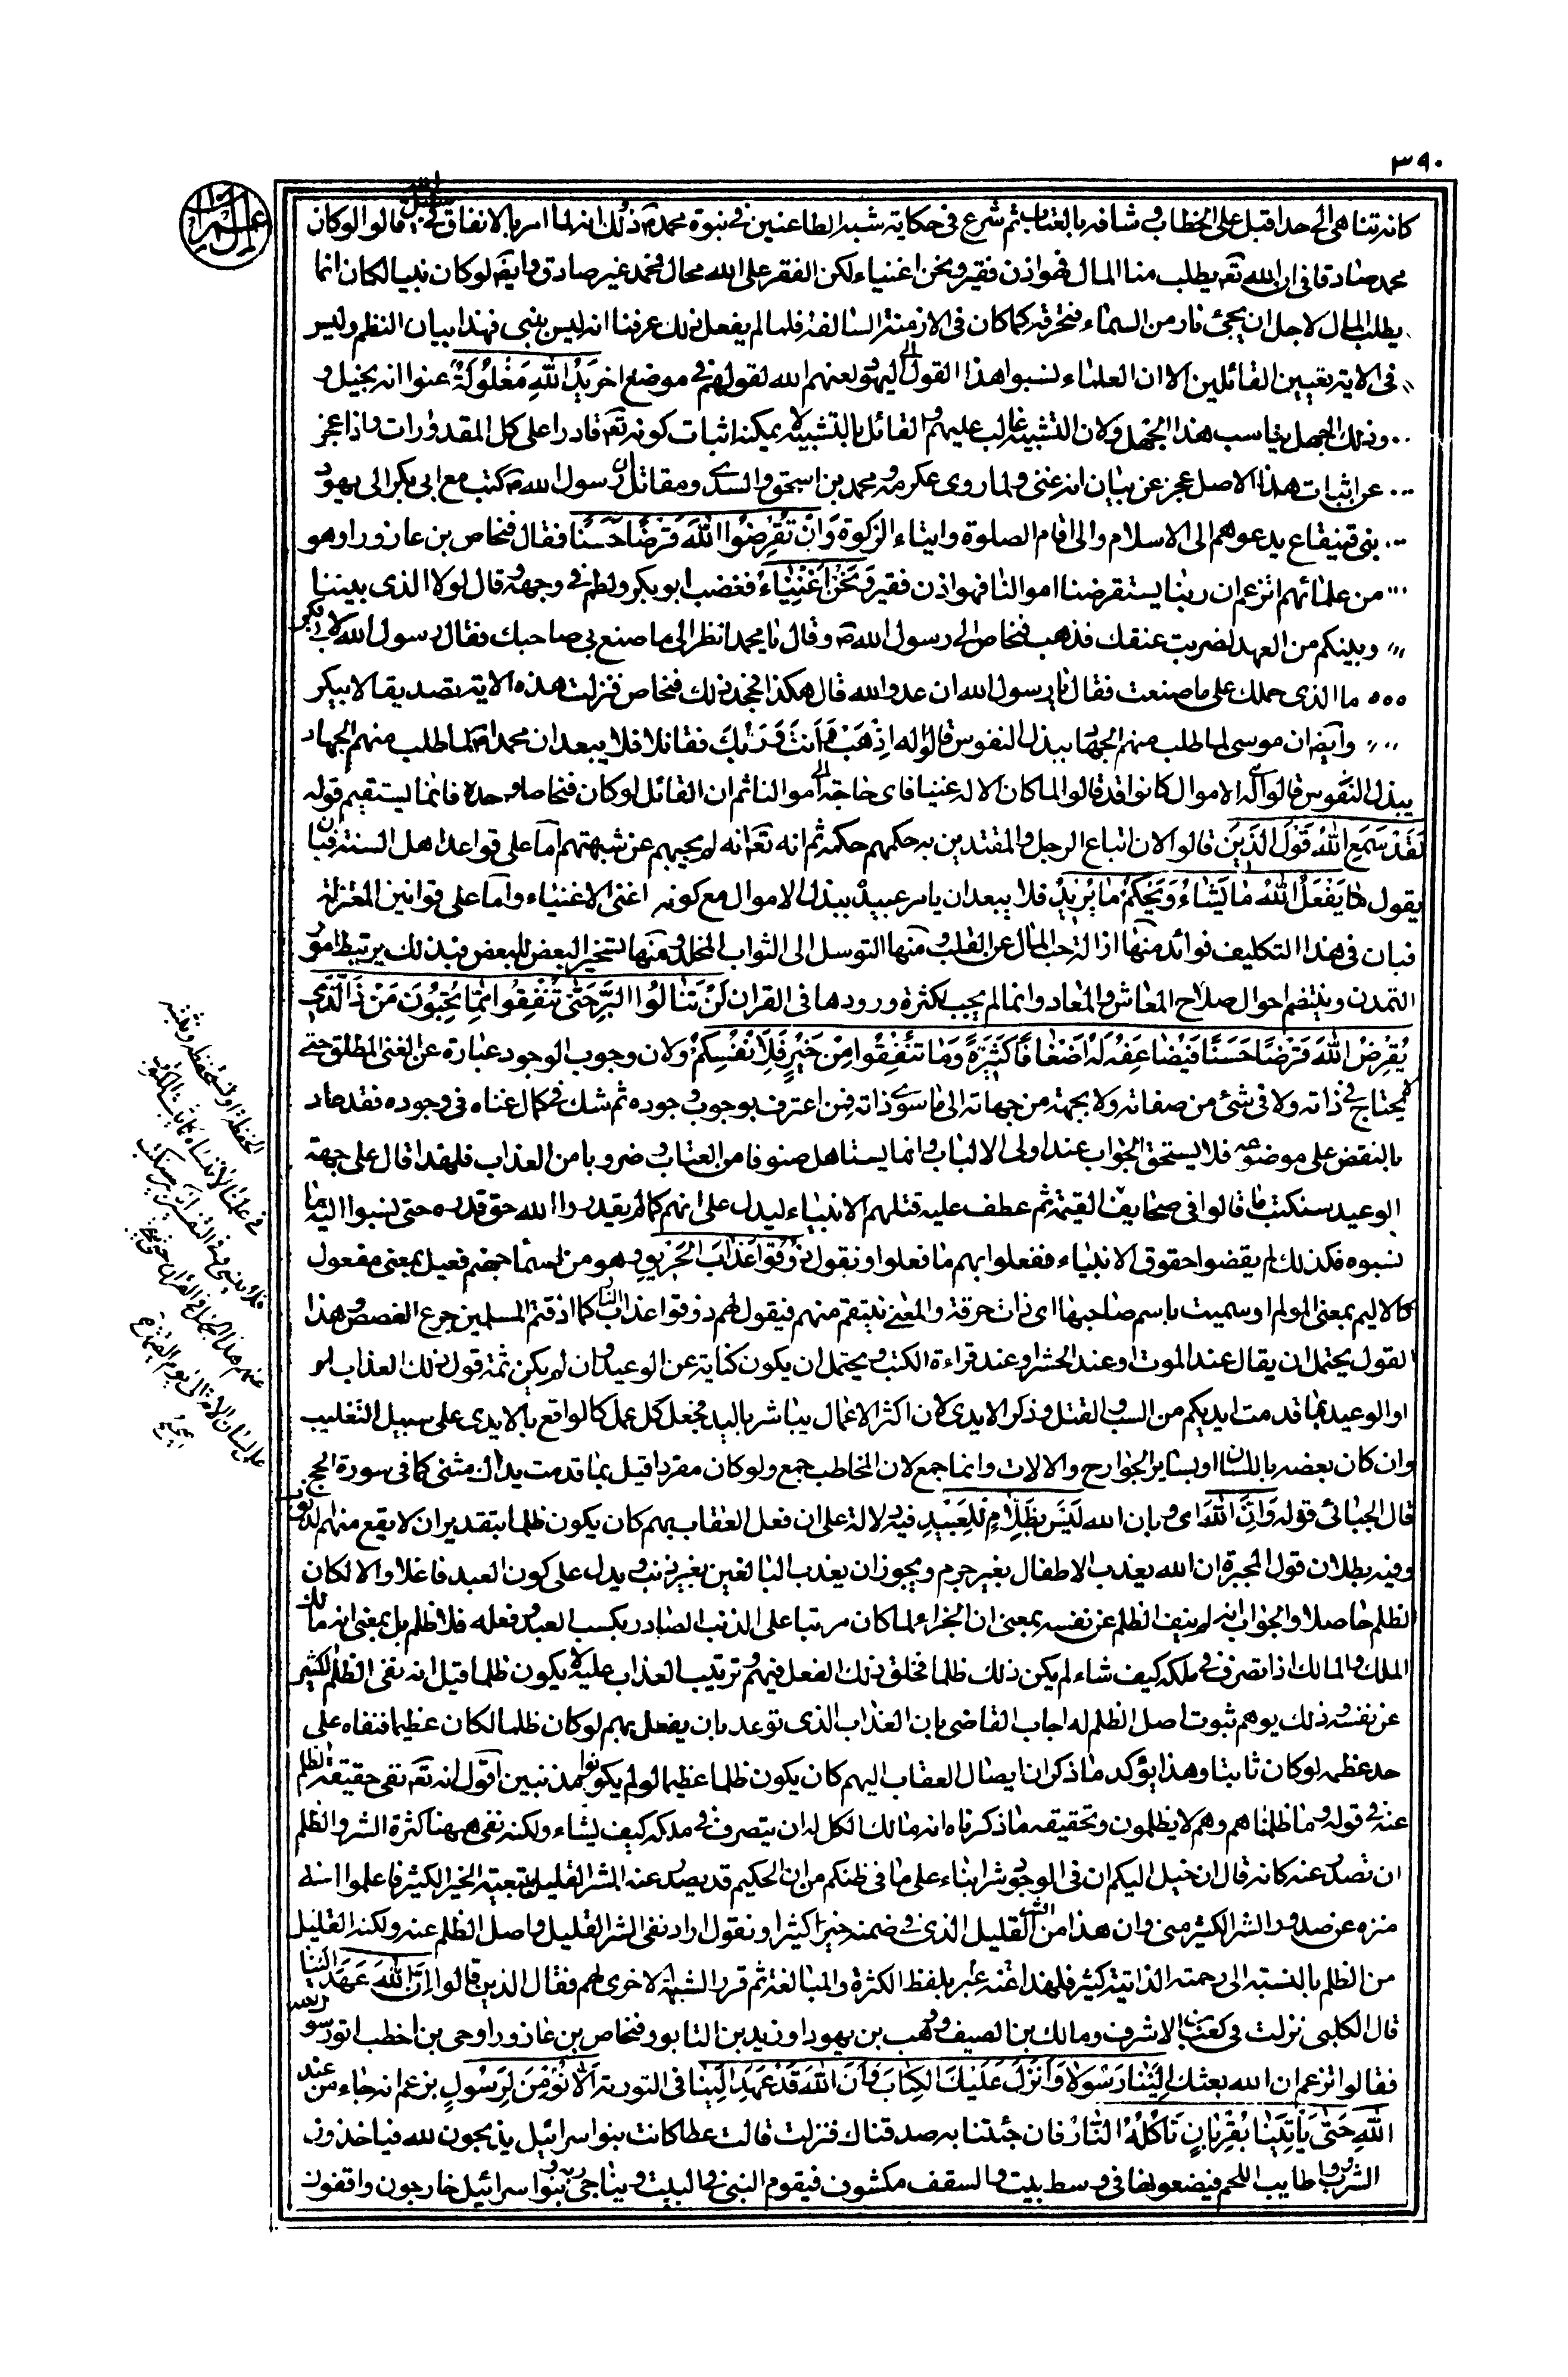 ٣٩٠
كانه تناهى الى حد اقبل على الخطاب وشافه بالعتاب ثم شرع فى حكاية شبه الطاعنين فى نبوة محمد ص وذلك انه لما امر بالانفاق فى سبيل الله قالوا لو كان
محمد صادقا فى ان الله تع يطلب منا المال فهو اذن فقير ونحن اغنياء لكن الفقر على الله محال فمحمد غير صادق وايضه لو كان نبيا لكان انما
يطلب المال لاجل ان يجئ نار من السماء فتحرقه كما كان فى الازمنة السالفة فلما لم يفعل ذلك عرفنا انه ليس بنبى فهذا بيان النظم وليس
فى الاية تعيين القائلين الا ان العلماء نسبوا هذا القول الى اليهود لعنهم الله لقولهم فى موضع اخر يَدُ اللّٰهِ مَغْلُولَةٌ عنوا انه بخيل و
وذلك الجهل يناسب هذا الجهل ولان التشبيه غالب عليهم والقائل بالتشبيه لا يمكنه اثبات كونه تع قادرا على كل المقدورات واذا عجز
عن اثبات هذا الاصل عجز عن بيان انه غنى ولما روى عكرمة ومحمد بن اسحق والسدى ومقاتل ان رسول الله ص كتب مع ابى بكر الى يهود
بنى قينقاع يدعوهم الى الاسلام والى اقام الصلوة وايتاء الزكوة وَانْ تُقْرِضُوا اللّٰهَ قَرْضًا حَسَنًا فقال فنحاص بن عازوراء وهو
من علمائهم اتزعم ان ربنا يستقرضنا اموالنا فهو اذن فقير وَنَحْنُ اَغْنِيَاءُ فغضب ابو بكر ولطم فى وجهه وقال لولا الذى بيننا
وبينكم من العهد لضربت عنقك فذهب فنحاص الى رسول الله ص وقال يا محمد انظر الى ما صنع بى صاحبك فقال رسول الله لابى بكر
ما الذى حملك على ما صنعت فقال يا رسول الله ان عدو الله قال هكذا فجحد ذلك فنحاص فنزلت هذه الاية تصديقا لابى بكر
وايضه ان موسى لما طلب منهم الجهاد ببذل النفوس قالوا له اِذْهَبْ اَنْتَ وَرَبُّكَ فقاتلا فلا يبعد ان محمدا ص لما طلب منهم الجهاد
ببذل النفوس قالوا له الاموال كانوا قد قالوا لما كان الاله غنيا فاى حاجة له الى اموالنا ثم ان القائل لو كان فنحاصا وحده فانما يستقيم قوله
لَقَدْ سَمِعَ اللّٰهُ قَوْلَ الَّذِينَ قالوا لان اتباع الرجل والمقتدين به حكمهم حكمه ثم انه تع لم يجبهم عن شبهتهم اما على قواعد اهل السنة فبان
يقول يَفْعَلُ اللّٰهُ مَا يَشَاءُ وَيَحْكُمُ مَا يُرِيدُ فلا يبعد ان يامر عبيده ببذل الاموال مع كونه اغنى الاغنياء واما على قوانين المعتزلة
فبان فى هذا التكليف فوائد منها ازالة حب المال عن القلب ومنها التوسل الى الثواب المخلد ومنها تسخير البعض للبعض فبذلك يرتبط امور
التمدن وينتظم احوال صلاح المعاش والمعاد وانما لم يجب لكثرة ورودها فى القران لَنْ تَنَالُوا الْبِرَّ حَتّٰى تُنْفِقُوا مِمَّا تُحِبُّونَ مَنْ ذَا الَّذِى
يُقْرِضُ اللّٰهَ قَرْضًا حَسَنًا فَيُضَاعِفَهُ لَهُ اَضْعَافًا كَثِيرَةً وَمَا تُنْفِقُوا مِنْ خَيْرٍ فَلِاَنْفُسِكُمْ ولان وجوب الوجود عبارة عن الغنى المطلق حتى
لا يحتاج فى ذاته ولا فى شئ من صفاته ولا بجهة من جهاته الى ما سوى ذاته فمن اعترف بوجوب وجوده ثم شك فى كمال غناه فى وجوده فقد عاد
بالنقض على موضوعه فلا يستحق الجواب عند اولى الالباب وانما يستاهل صنوفا من العتاب وضروبا من العذاب فلهذا قال على جهة
الوعيد سنكتب ما قالوا فى صحايف القيمة ثم عطف عليه قتلهم الانبياء ليدل على انهم كما لم يقدروا الله حق قدره حتى نسبوا اليه ما
نسبوه فكذلك لم يقضوا حقوق الانبياء ففعلوا بهم ما فعلوا ونقول ذُوقُوا عَذَابَ الْحَرِيقِ وهو من اسماء جهنم فعيل بمعنى مفعول
كالاليم بمعنى المولم او سميت باسم صاحبها اى ذات حرقة والمعنى ننتقم منهم فيقول لهم ذوقوا عذاب النار كما اذقتم المسلمين جرع الغصص وهذا
القول يحتمل ان يقال عند الموت او عند الحشر او عند قراءة الكتب ويحتمل ان يكون كناية عن الوعيد وان لم يكن ثمة قول ذلك العذاب
او الوعيد بما قدمت ايديكم من السب والقتل وذكر الايدى لان اكثر الاعمال يباشر باليد فجعل كل عمل كالواقع بالايدى على سبيل التغليب
وان كان بعضه باللسان او بسائر الجوارح والالات وانما جمع لان المخاطب جمع ولو كان مفردا قيل بما قدمت يداك مثنى كما فى سورة الحج
قال الجبائى قوله وَاَنَّ اللّٰهَ اى وبان الله لَيْسَ بِظَلَّامٍ لِلْعَبِيدِ فيه دلالة على ان فعل العقاب بهم كان يكون ظلما بتقدير ان لا يقع منهم الذنوب
وفيه بطلان قول المجبرة ان الله يعذب الاطفال بغير جرم ويجوز ان يعذب البالغين بغير ذنب ويدل على كون العبد فاعلا والا لكان
الظلم حاصلا والجواب انه لم ينف الظلم عن نفسه بمعنى ان الجزاء لما كان مرتبا على الذنب الصادر بكسب العبد وفعله فلا ظلم بل بمعنى انه مالك
الملك والمالك اذا تصرف فى ملكه كيف شاء لم يكن ذلك ظلما فخلق ذلك الفعل فيهم وترتيب العذاب عليه لا يكون ظلما قيل انه نفى الظلم الكثير
عن نفسه وذلك يوهم ثبوت اصل الظلم له اجاب القاضى بان العذاب الذى توعد بان يفعل بهم لو كان ظلما لكان عظيما فنفاه على
حد عظمه لو كان ثابتا وهذا يؤكد ما ذكر ان ايصال العقاب اليهم كان يكون ظلما عظيما لو لم يكونوا مذنبين اقول انه تع نفى حقيقة الظلم
عنه فى قوله وما ظلمناهم وهم لا يظلمون وتحقيقه ما ذكرناه انه مالك الكل له ان يتصرف فى ملكه كيف يشاء ولكنه نفى ههنا كثرة الشر والظلم
ان تصدر عنه كانه قال ان خيل اليكم ان فى الوجود شرا بناء على ما فى ظنكم من ان الحكيم قد يصدر عنه الشر القليل بتبعية الخير الكثير فاعلموا انه
منزه عن صدور الشر الكثير منى وان هذا من الشر القليل الذى فى ضمنه خير كثير او نقول اراد نفى الشر القليل واصل الظلم عنه ولكن القليل
من الظلم بالنسبة الى رحمته الذاتية كثير فلهذا عنه عبر بلفظ الكثرة والمبالغة ثم قرر الشبهة الاخرى لهم فقال الذين قالوا اِنَّ اللّٰهَ عَهِدَ اِلَيْنَا
قال الكلبى نزلت فى كعب بن الاشرف ومالك بن الصيف ووهب بن يهودا وزيد بن التابوه وفنحاص بن عازوراء وحى بن اخطب اتوا رسول الله
فقالوا اتزعم ان الله بعثك اِلَيْنَا رَسُولًا وَاَنْزَلَ عَلَيْكَ الْكِتَابَ وَاَنَّ اللّٰهَ قَدْ عَهِدَ اِلَيْنَا فى التورية اَلَّا نُؤْمِنَ لِرَسُولٍ يزعم انه جاء من عند
اللّٰهِ حَتّٰى يَأْتِيَنَا بِقُرْبَانٍ تَأْكُلُهُ النَّارُ فان جئتنا به صدقناك فنزلت قالت عطا كانت بنوا سرائيل يذبحون لله فياخذون
الثروب واطايب اللحم فيضعونها فى وسط بيت والسقف مكشوف فيقوم النبى فى البيت ويناجى ربه وبنوا سرائيل خارجون واقفون